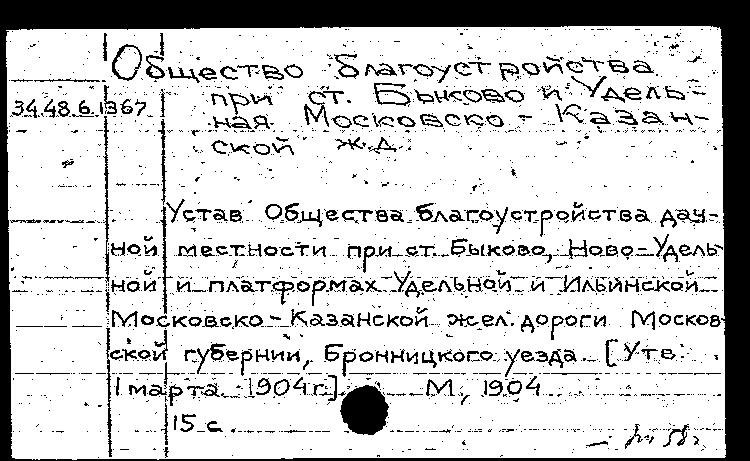 Общество благоустройства
34.48.6.1367
при ст. Быково и Удель-
ная Московско-Казан-
ской ж.д.
Устав Общества благоустройства дач-
ной местности при ст. Быково, Ново-Удель-
ной и платформах Удельной и Ильинской
Московско-Казанской жел. дороги Москов-
ской губернии, Бронницкого уезда. [Утв.
1 марта 1904 г.]. М, 1904
15 с.
58 г.